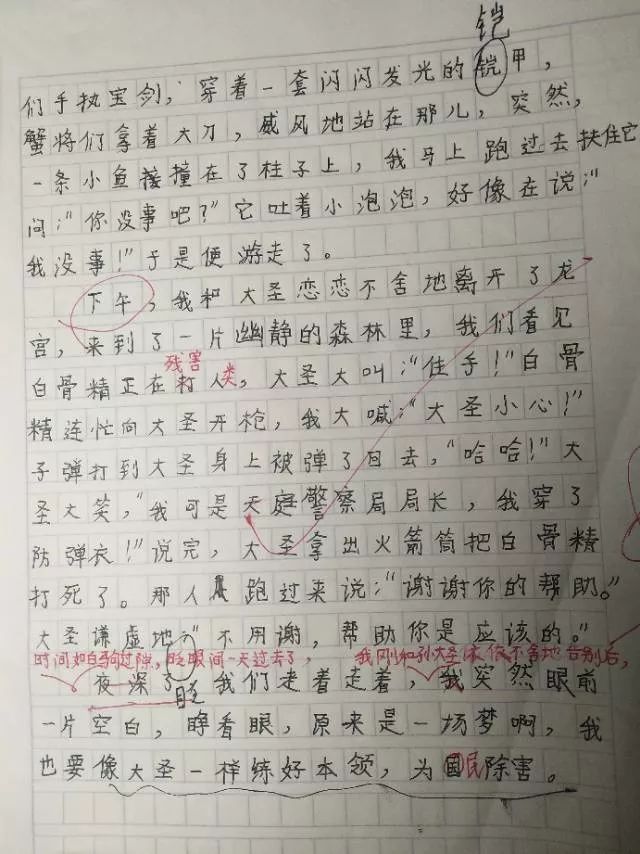 铠
们手执宝剑，穿着一套闪闪发光的铠甲，
蟹将们拿着大刀，威风地站在那儿，突然，
一条小鱼撞在了柱子上，我马上跑过去扶住它
问：“你没事吧？”它吐着小泡泡，好像在说：“
我没事！”于是便游走了。
下午，我和大圣恋恋不舍地离开了龙
宫，来到了一片幽静的森林里，我们看见
残害
白骨精正在打人类，大圣大叫：“住手！”白骨
精连忙向大圣开枪，我大喊：“大圣小心！”
子弹打到大圣身上被弹了回去，“哈哈！”大
圣大笑，“我可是天庭警察局局长，我穿了
防弹衣！”说完，大圣拿出火箭筒把白骨精
打死了。那人跑过来说：“谢谢你的帮助。”
大圣谦虚地：“不用谢，帮助你是应该的。”
时间如白驹过隙，眨眼间一天过去了，我刚和孙大圣依依不舍地告别后，
夜深了，我们走着走着，我突然眼前
一片空白，睁看眼，原来是一场梦啊，我
也要像大圣一样练好本领，为国民除害。